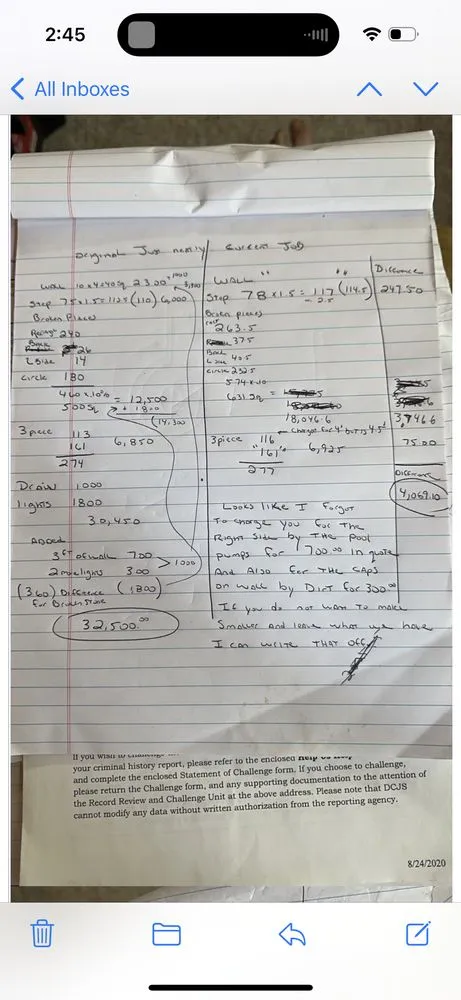 2:45
All Inboxes
Original Just nearly / Current Job
Difference
Wall 10 x 4 x 40 sq 23.00 +1000
Step 75 x 1.5 = 112.5 (110) 6,000
Broken Pieces
240
26
L Side 14
Circle 180
460 x 10%
500 Sq = 12,500
+ 1800
(14,300
3 piece 113
161 6,850
274
Drain 1,000
lights 1800
30,450
Added
3 ft of wall 700
2 more lights 300 > 1000
(360) Difference (1,800)
For Broken Stone
32,500.00
Wall " "
Step 78 x 1.5 = 117 (114.5) 247.50
- 2.5
Broken pieces
263.5
37.5
Back
L side 40.5
Circle 232.5
574 x 10
631 sq =
18,046.6 3,746.6
← Charged for 4' but is 4.5'
3 piece "116
"161" 6,925 75.00
277
Difference
4,069.10
Looks like I forgot
To charge you for the
Right Side by the pool
pumps for 1700.00 in quote
And Also for the Caps
on wall by Dirt for 300.00
If you do not want to make
Smaller and leave what we have
I can write that off
If you wish to
your criminal history report, please refer to the enclosed
and complete the enclosed Statement of Challenge form. If you choose to challenge,
please return the Challenge form, and any supporting documentation to the attention of
the Record Review and Challenge Unit at the above address. Please note that DCJS
cannot modify any data without written authorization from the reporting agency.
8/24/2020